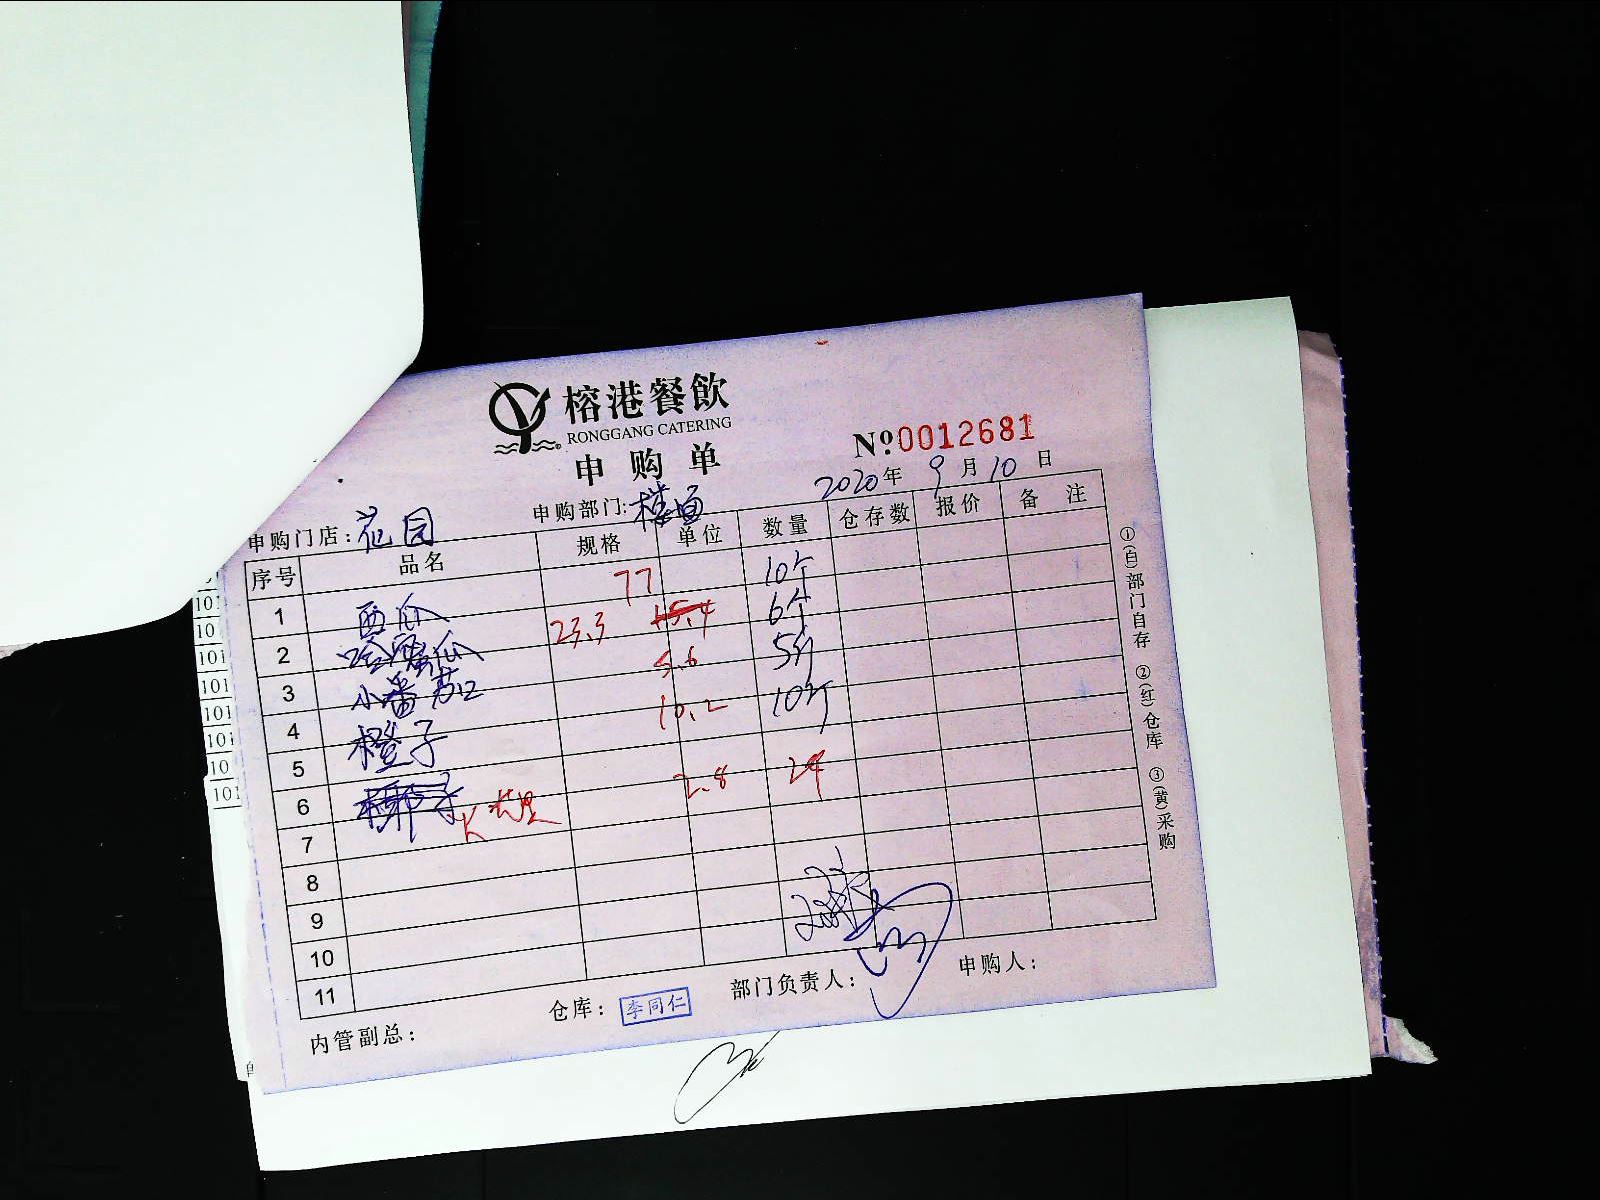 榕港餐飲
RONGGANG CATERING
申购单
№0012681
2020年 9月10日
申购门店：花园 申购部门：楼面
序号 品名 规格 单位 数量 仓存数 报价 备注
1 西瓜 77 10个
2 哈密瓜 23.3 15.4 6个
3 小番茄 5.6 5斤
4 橙子 10.2 10个
5
6 椰子 2.8 24
7
8
9
10
11
内管副总： 仓库：李同仁 部门负责人： 申购人：
①(白)部门自存 ②(红)仓库 ③(黄)采购
101
10
101
101
101
101
10
101